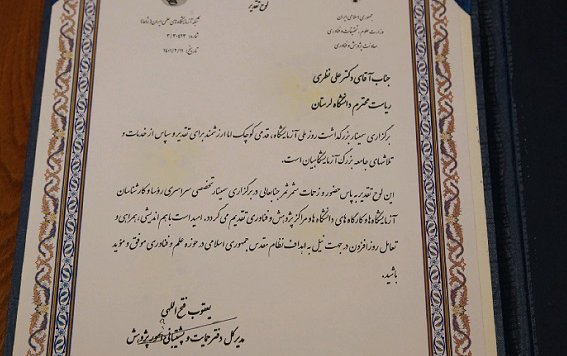 لوح تقدیر
جمهوری اسلامی ایران
وزارت علوم، تحقیقات و فناوری
معاونت پژوهش و فناوری
شبکه آزمایشگاه‌های علمی ایران (شاعا)
شماره: ۳/۳۰۵۲۳
تاریخ: ۱۴۰۱/۲/۱۹
جناب آقای دکتر علی نظری
ریاست محترم دانشگاه لرستان
برگزاری سمینار بزرگداشت روز ملی آزمایشگاه، قدمی کوچک اما ارزشمند برای تقدیر و سپاس از خدمات و
تلاشهای جامعه بزرگ آزمایشگاهیان است.
این لوح تقدیر به پاس حضور و زحمات مثمر ثمر جنابعالی در برگزاری سمینار تخصصی سراسری روسا و کارشناسان
آزمایشگاه‌ها و کارگاه‌های دانشگاه‌ها و مراکز پژوهش و فناوری تقدیم می‌گردد. امید است با هم اندیشی، همراهی و
تعامل روز افزون در جهت نیل به اهداف نظام مقدس جمهوری اسلامی در حوزه علم و فناوری موفق و مؤید
باشید.
یعقوب فتح اللهی
مدیر کل دفتر حمایت و پشتیبانی امور پژوهش